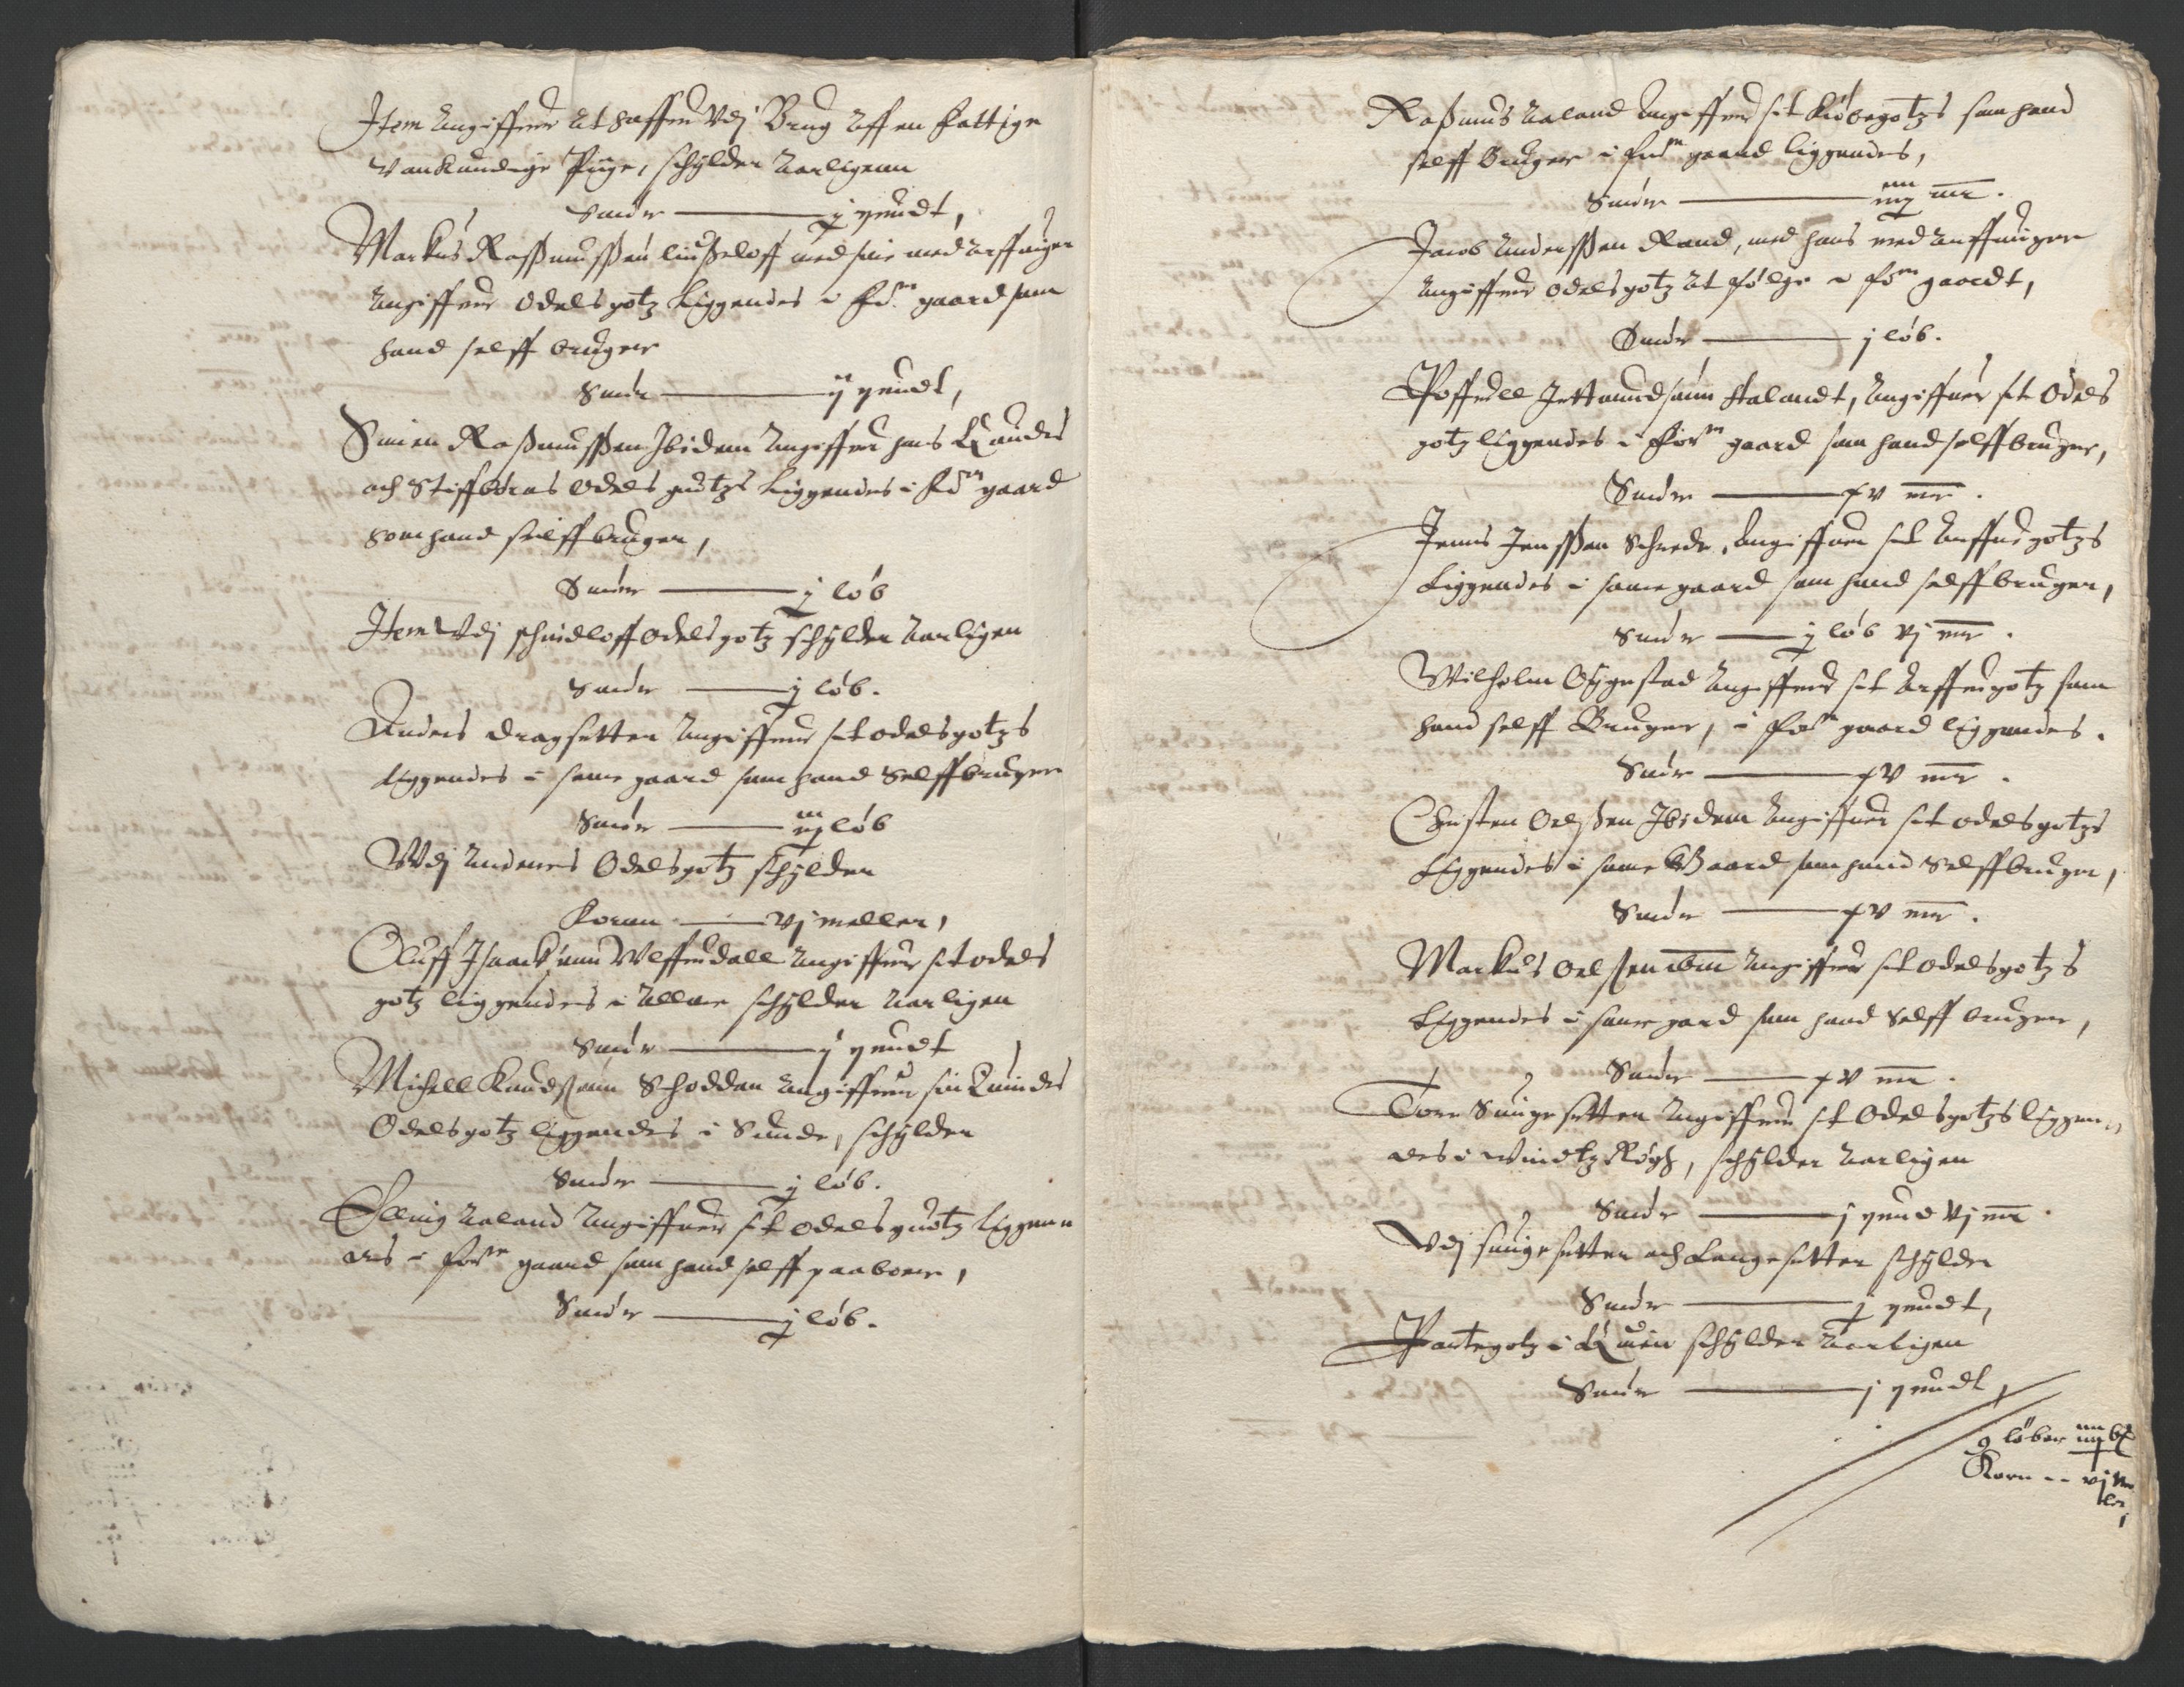 Item Angiffuer at haffue Vdj Brug aff en fattige
Vankundige Pige, schylder aarligenn
Smør — j pundt,
Markus Rasmussen med sine med arffuinger
Angiffuer Odelsgotz liggendes i forne gaard som
hand selff bruger
Smør — ij pundt,
Simen Rasmussen Ibidem Angiffuer hans Quindes
och Stiffbørns Odels gudtzs liggendes i forne gaard
som hand selff bruger,
Smør — j løb
Item Vdj Odelsgotz schylder aarligen
Smør — j løb.
Anders Dragsetter Angiffuer sit odelsgotzs
liggendes i same gaard som hand Selff bruger
Smør — løb
Vdj Andenes Odelsgotz schylder
Kornn — vj meller,
Oluff Isaacksenn Vlffuedall Angiffuer sit odels
gotz liggendes i schylder aarligen
Smør — j pundt
Michell Knudsenn Schodden Angiffuer sin Quindes
Odelsgotz liggendes i Sunde, schylder
Smør — j løb.
Elling Aaland Angiffuer sit odels guotz liggenn
des i forne gaard som hand selff paaboer,
Smør — j løb.
Rasmus Aaland Angiffuer sit Kiøbegotzs som hand
selff bruger i forne gaard liggendes,
Smør — mr.
Jacob Anderssen Rand, med hans med arffuinger
Angiffuer odelsgotz at følge i forne gaardt,
Smør — j løb.
Poffuell Halandt, Angiffuer sit Odels
gotz liggendes i forne gaard som hand selff bruger,
Smør — xv mr.
Jenns Jenssen Schrede, Angiffuer sit Arffue gotzs
liggendes i same gaard som hand selff bruger,
Smør — j løb vj mr.
Wilhelm Øygestad Angiffuer sit Arffuegotz som
hand selff Bruger, i forne gaard liggendes.
Smør — xv mr.
Christen Oelssen Ibidem Angiffuer sit odelsgotzs
liggendes i same Gaard som hand Selff bruger,
Smør — xv mr.
Markus Oelssen ibm Angiffuer sit odelsgotzs
liggendes i same gard som hand Selff bruger,
Smør — xv mr.
Tore Sungesetter Angiffuer sit Odelsgotzs liggen„
des i schylder aarligen
Smør — j pund vj mr.
Vdj sungesetter och Langesetter schylder
Smør — j pundt,
Partegotz i Quin schylder aarligen
Smør — j pundt,
9 løber
Korn -- vj me
ler,